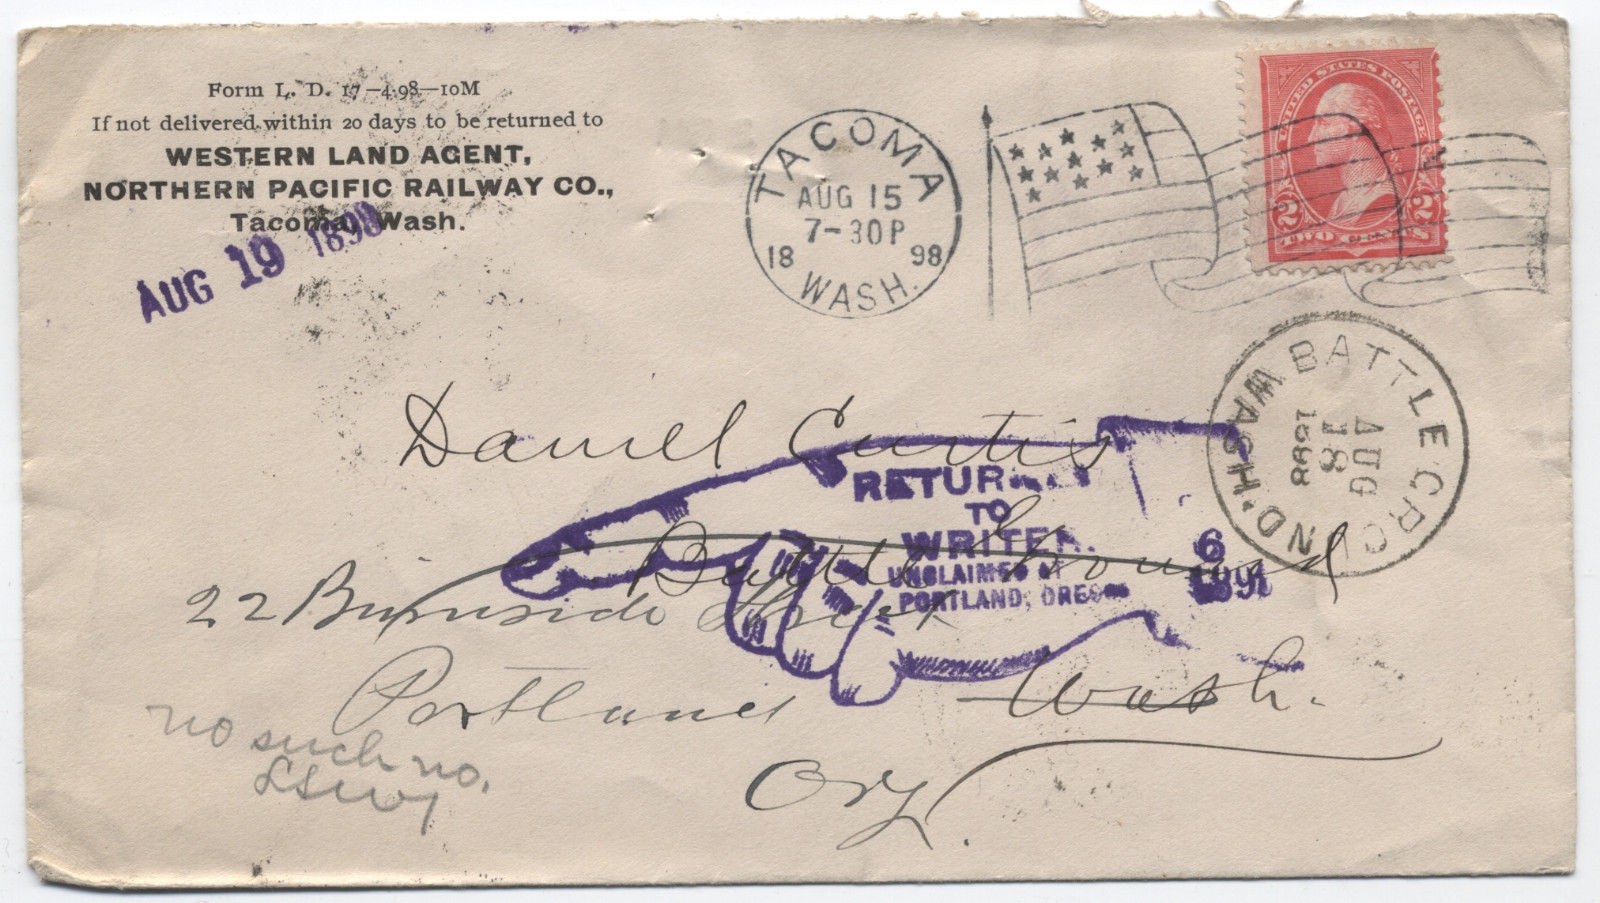 Form L. D. 17—4-98—10M
If not delivered within 20 days to be returned to
WESTERN LAND AGENT,
NORTHERN PACIFIC RAILWAY CO.,
Tacoma, Wash.
AUG 19 1898
TACOMA
AUG 15
7-30P
18 98
WASH.
UNITED STATES POSTAGE
2 2
TWO CENTS
BATTLE GROUND, WASH.
AUG
18
1898
Daniel Curtis
Battle Ground
Wash.
22 Burnside Street
Portland
Org.
RETURNED
TO
WRITER.
UNCLAIMED AT
PORTLAND, OREGON
6
no such no.